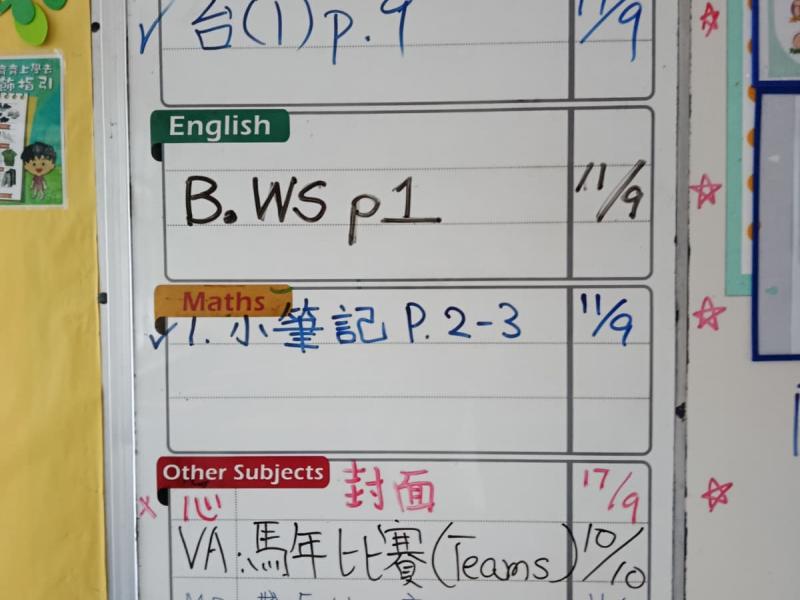 ✓ 台(1) p.9 11/9
齊齊上學去
飾指引
English
B. WS p1 11/9
Maths
✓ 1. 小筆記 P.2-3 11/9
Other Subjects
x 心 封面 17/9
VA: 馬年比賽(Teams) 10/10